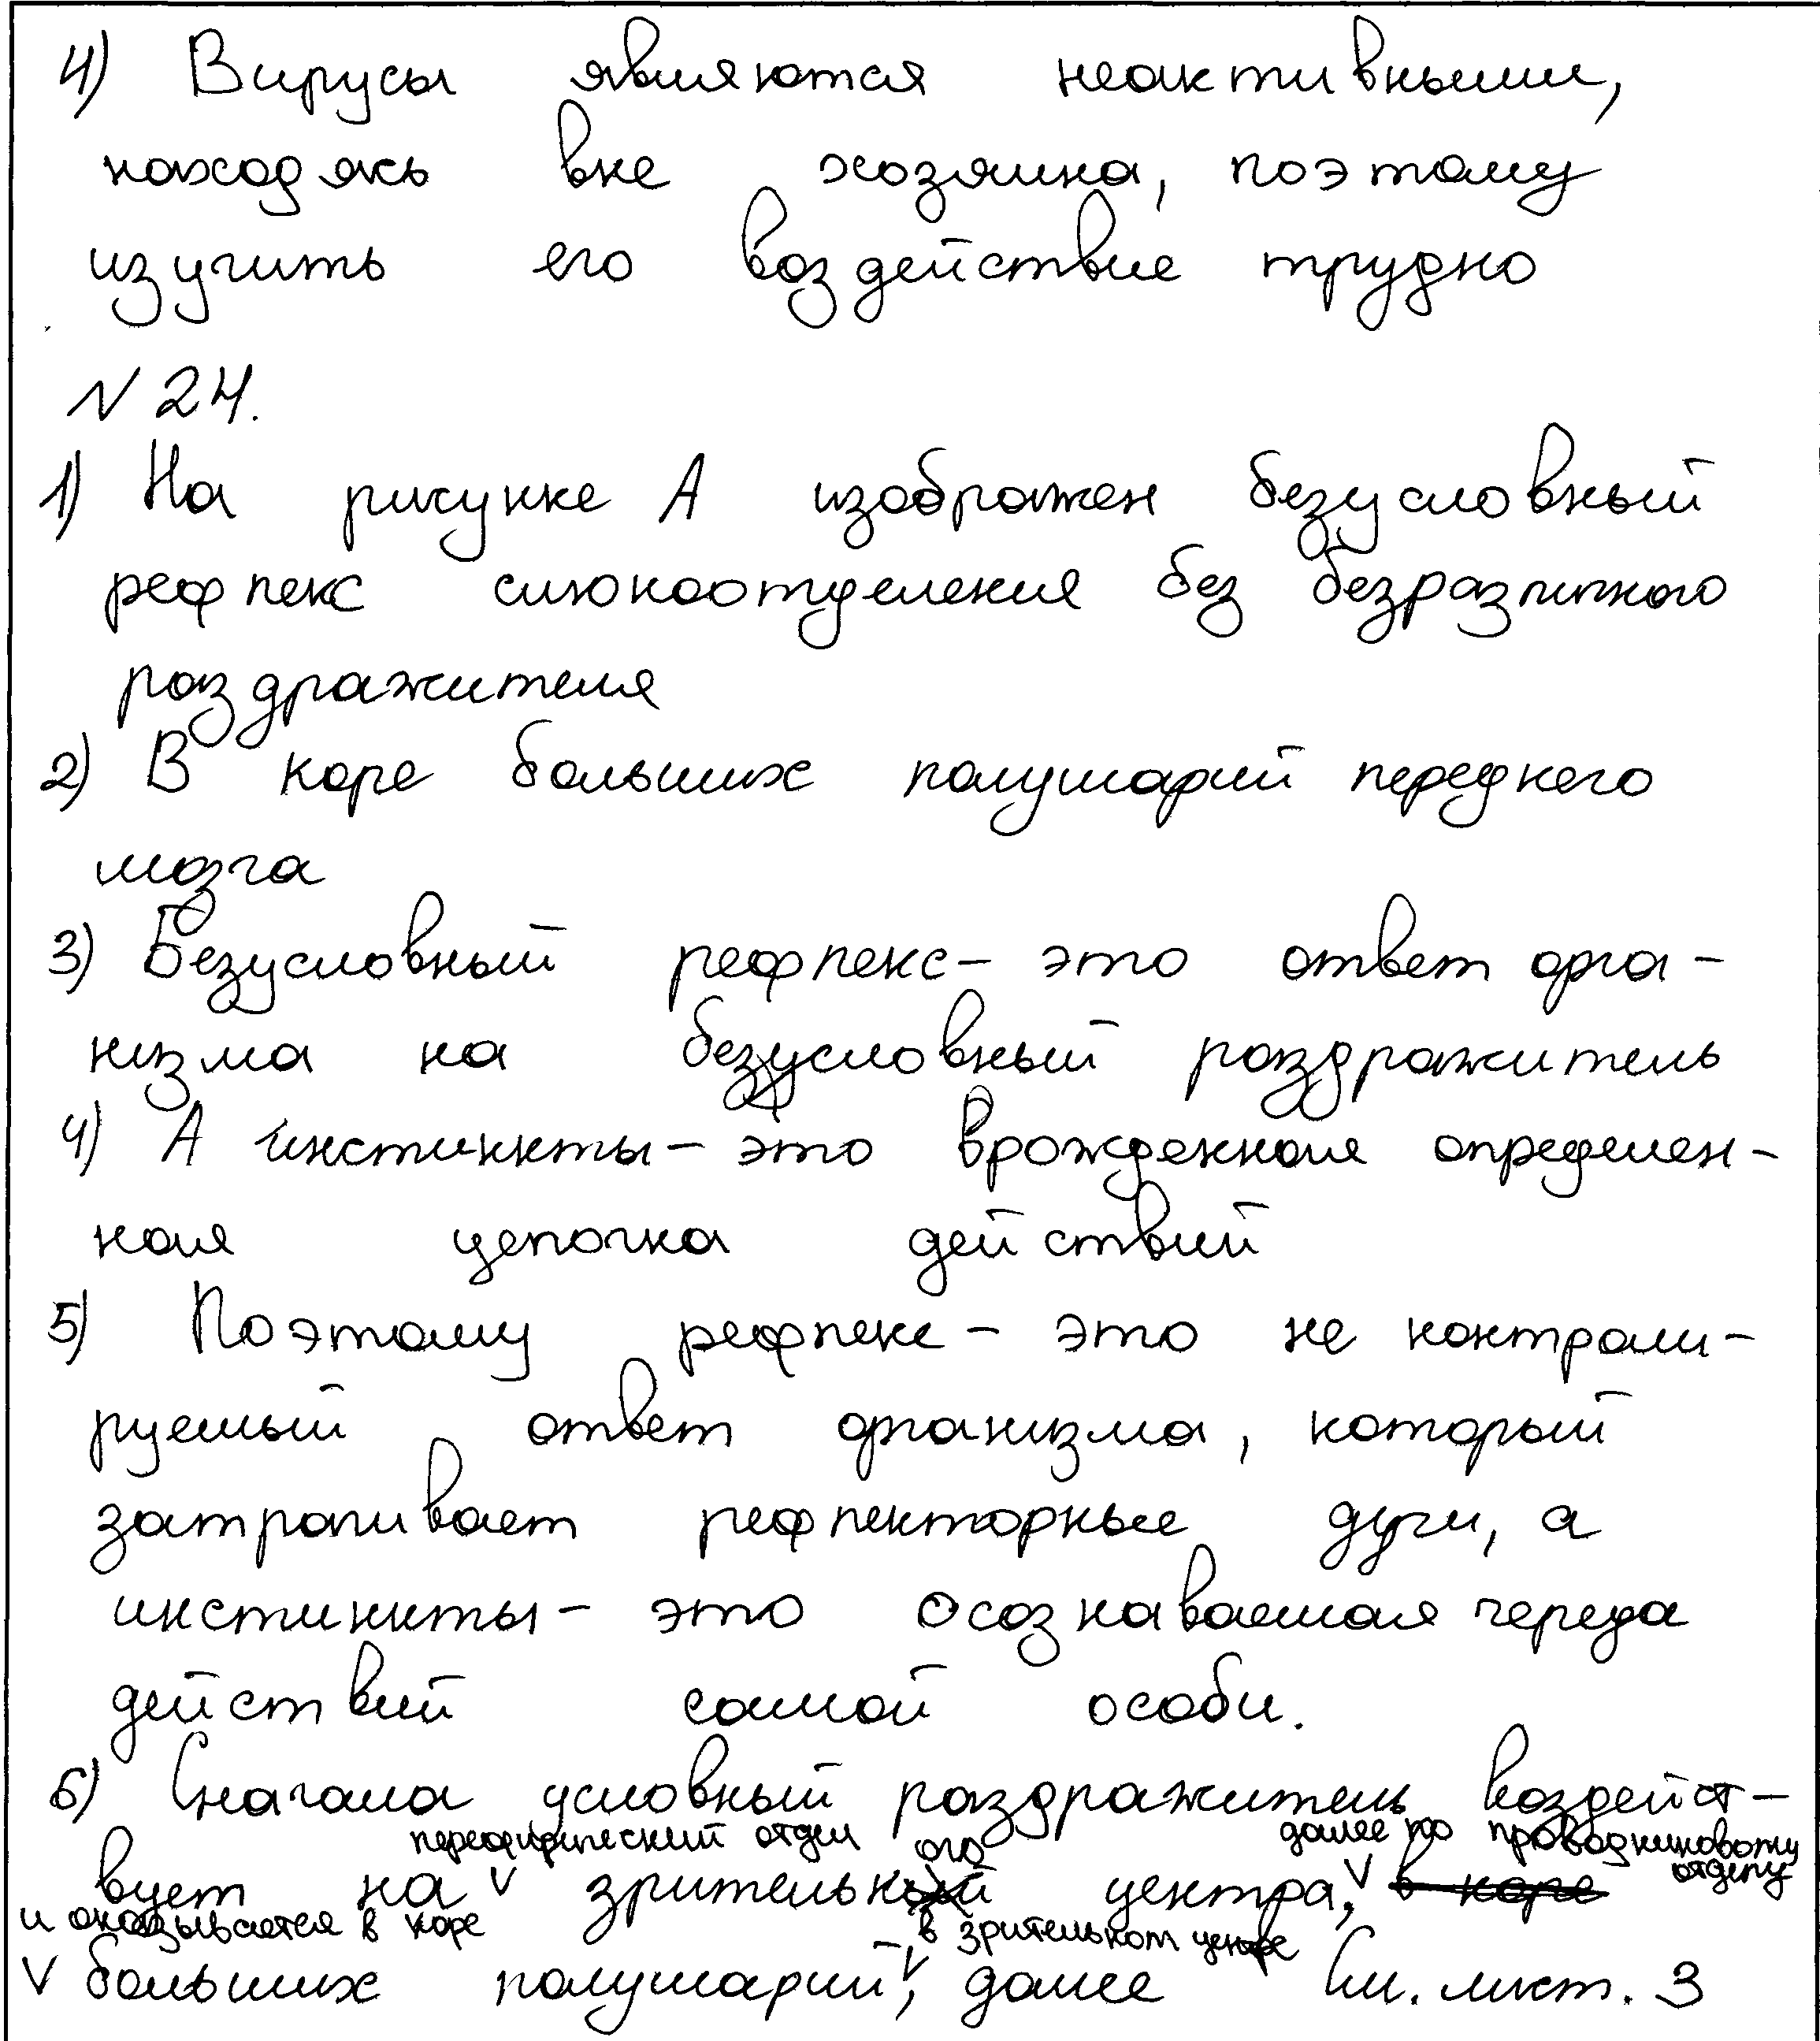 4) Вирусы являются неактивными,
находясь вне хозяина, поэтому
изучить его воздействие трудно
N 24.
1) На рисунке А изображен безусловный
рефлекс слюноотделения без безразличного
раздражителя
2) В коре больших полушарий переднего
мозга
3) Безусловный рефлекс - это ответ орга-
низма на безусловный раздражитель
4) А инстинкты - это врожденная определен-
ная цепочка действий
5) Поэтому рефлекс - это не контроли-
руемый ответ организма, который
затрагивает рефлекторные дуги, а
инстинкты - это осознаваемая череда
действий самой особи.
6) Сначала условный раздражитель воздейст-
периферический отдел ого далее по проводниковому
вует на V зрительный центра, V в коре отделу
и оказывается в коре в зрительном центре
V больших полушарий, V далее См. лист. 3